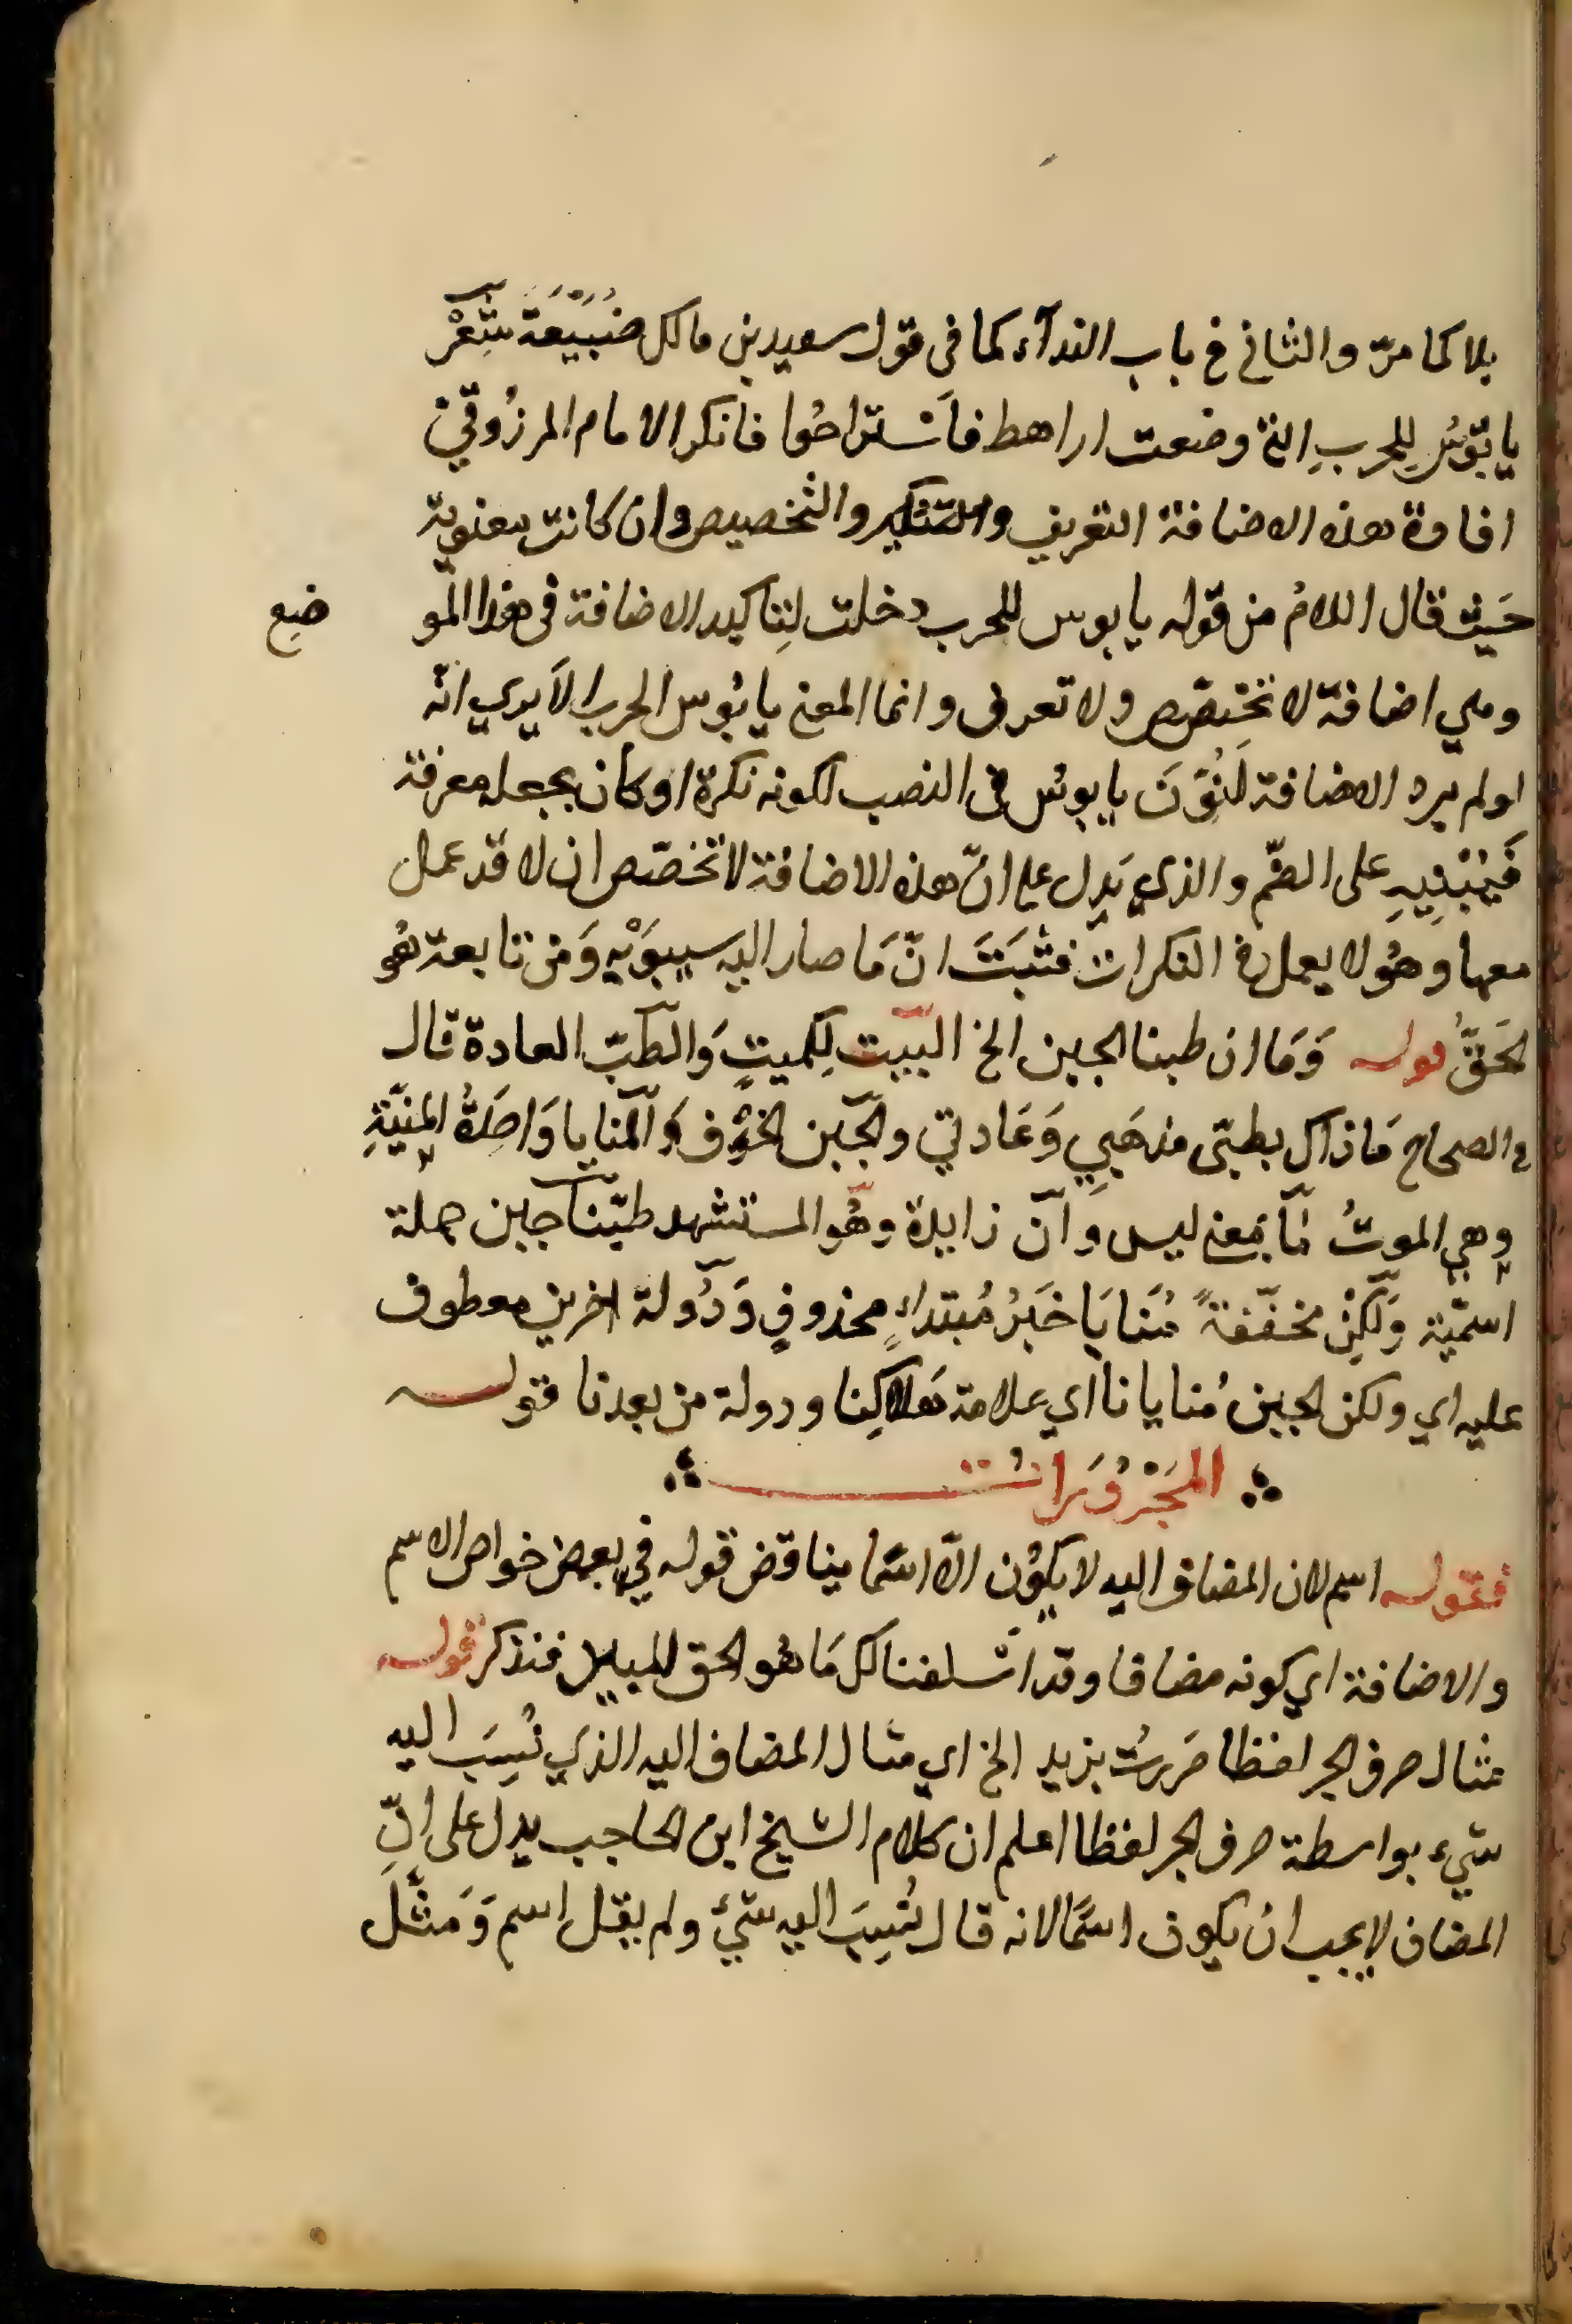 بلا كما مرّ والثاني في باب الندآء كما في قول سعيد بن مالك ضُبَيْعَة شِعْر
يا بُؤسَ لِلحربِ التي وضعت اراهط فاَسْتراحُوا فانكر الامام المرزُوقيّ
افادة هذه الاضافة التعريف والتنكير والتخصيص وان كانت معنوية
حَيث قال اللامُ من قوله يا بوس للحرب دخلت لِتاكيد الاضافة في هذا المو ضع
وهي اضافة لا تخصّص ولا تعرف وانما المعنى يا بُوس الحرب الا يرى انّه
لو لم يرد الاضافة لَنُوِّنَ يا بوسُ في النصب لكونه نكرة او كان يجعله معرفة
فَيُبْنِيهِ على الضّم والذي يَدل على انّ هذه الاضافة لا تخصّص ان لا قد عمل
معها وهُو لا يعمل في النكرات فثبَتَ انّ مَا صار اليه سيبوَيْه وَمن تابعه هُو
الحَقّ قوله وَمَا ان طبنا الجبن الخ البَيت لِكميتٍ وَالطَبّ العادة قال
في الصحاح مَا ذاك بطبّي مذهَبِي وَعَادتي والجُبن الخوف وَالمنايا وَاحِدَةُ المِنيّةِ
وهي الموتُ مَا بمعنى ليس وان زايدة وهُو المستشهد طبّنا جبن جملة
اسمّية وَلكِنْ مخفّفةً مُنَايَا خَبَرُ مُبتداءٍ محذوفٍ وَدُولة اخرين معطوف
عليه اي ولكن الجبن مُنايانا اي علامة هَلاكِنا ودولة من بعدنا قوله
المَجْرُوَرات
فقوله اسم لان المضاف اليه لا يكُون الّا اسمًا يناقض قوله في بعض خواص الاسم
والاضافة اي كونه مضافا وقد اسلفنا لك مَا هُو الحق المبين فتذكر قوله
مثال حرف الجر لفظا مَررتُ بزيد الخ اي مثال المضاف اليه الذي نُسِبَ اليه
شيء بواسطة حرف الجر لفظا اعلم ان كلام الشيخ ابن الحاجب يدل على انّ
المضاف لا يجب ان يكون اسمًا لانه قال نُسِبَ اليه شيءٌ ولم يقل اسم وَمَثَّلَ